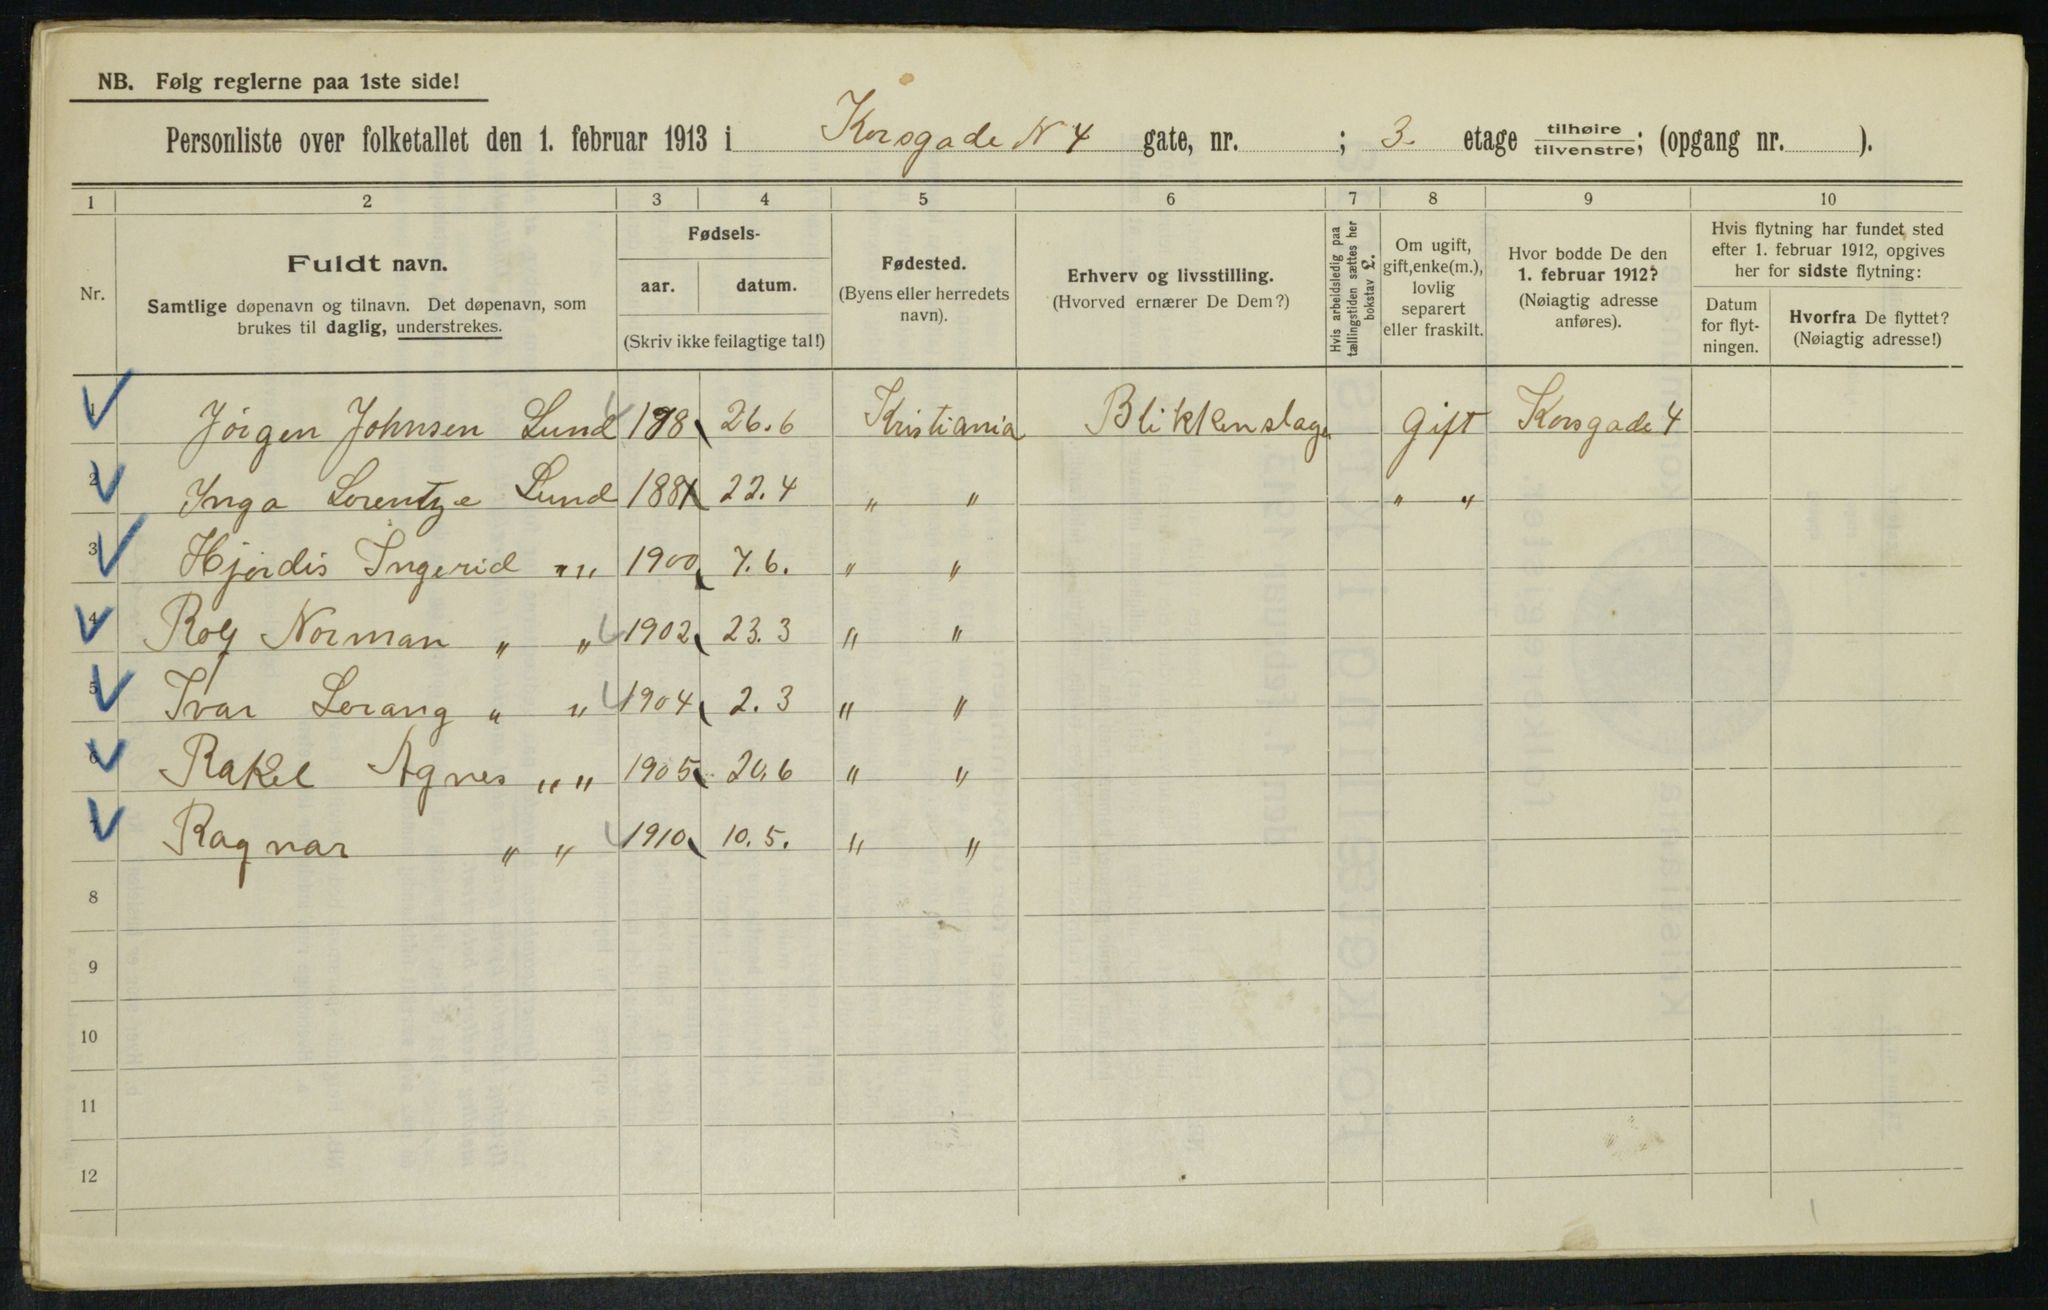 NB. Følg reglerne paa 1ste side!
Personliste over folketallet den 1. februar 1913 i Korsgade N 4 gate, nr. ; 3. etage tilhøire tilvenstre; (opgang nr. ).
1 2 3 4 5 6 7 8 9 10
Nr.
Fuldt navn.
Samtlige døpenavn og tilnavn. Det døpenavn, som
brukes til daglig, understrekes.
Fødsels-
aar. datum.
(Skriv ikke feilagtige tal!)
Fødested.
(Byens eller herredets
navn).
Erhverv og livsstilling.
(Hvorved ernærer De Dem?)
Hvis arbeidsledig paa
tællingstiden sættes her
bokstav L.
Om ugift,
gift, enke(m.),
lovlig
separert
eller fraskilt.
Hvor bodde De den
1. februar 1912?
(Nøiagtig adresse
anføres).
Hvis flytning har fundet sted
efter 1. februar 1912, opgives
her for sidste flytning:
Datum
for flyt-
ningen.
Hvorfra De flyttet?
(Nøiagtig adresse!)
1 Jørgen Johnsen Lund 26.6 Kristiania Blikkenslager Gift Korsgade 4
2 Inga Lorentze Lund 1881 22.4 " " " "
3 Hjørdis Ingerid " " 1900 7.6. " "
4 Rolf Norman " " 1902 23.3 " "
5 Ivar Lorang " " 1904 2.3 " "
6 Rakel Agnes " " 1905 20.6 " "
7 Ragnar " " 1910 10.5. " "
8
9
10
11
12